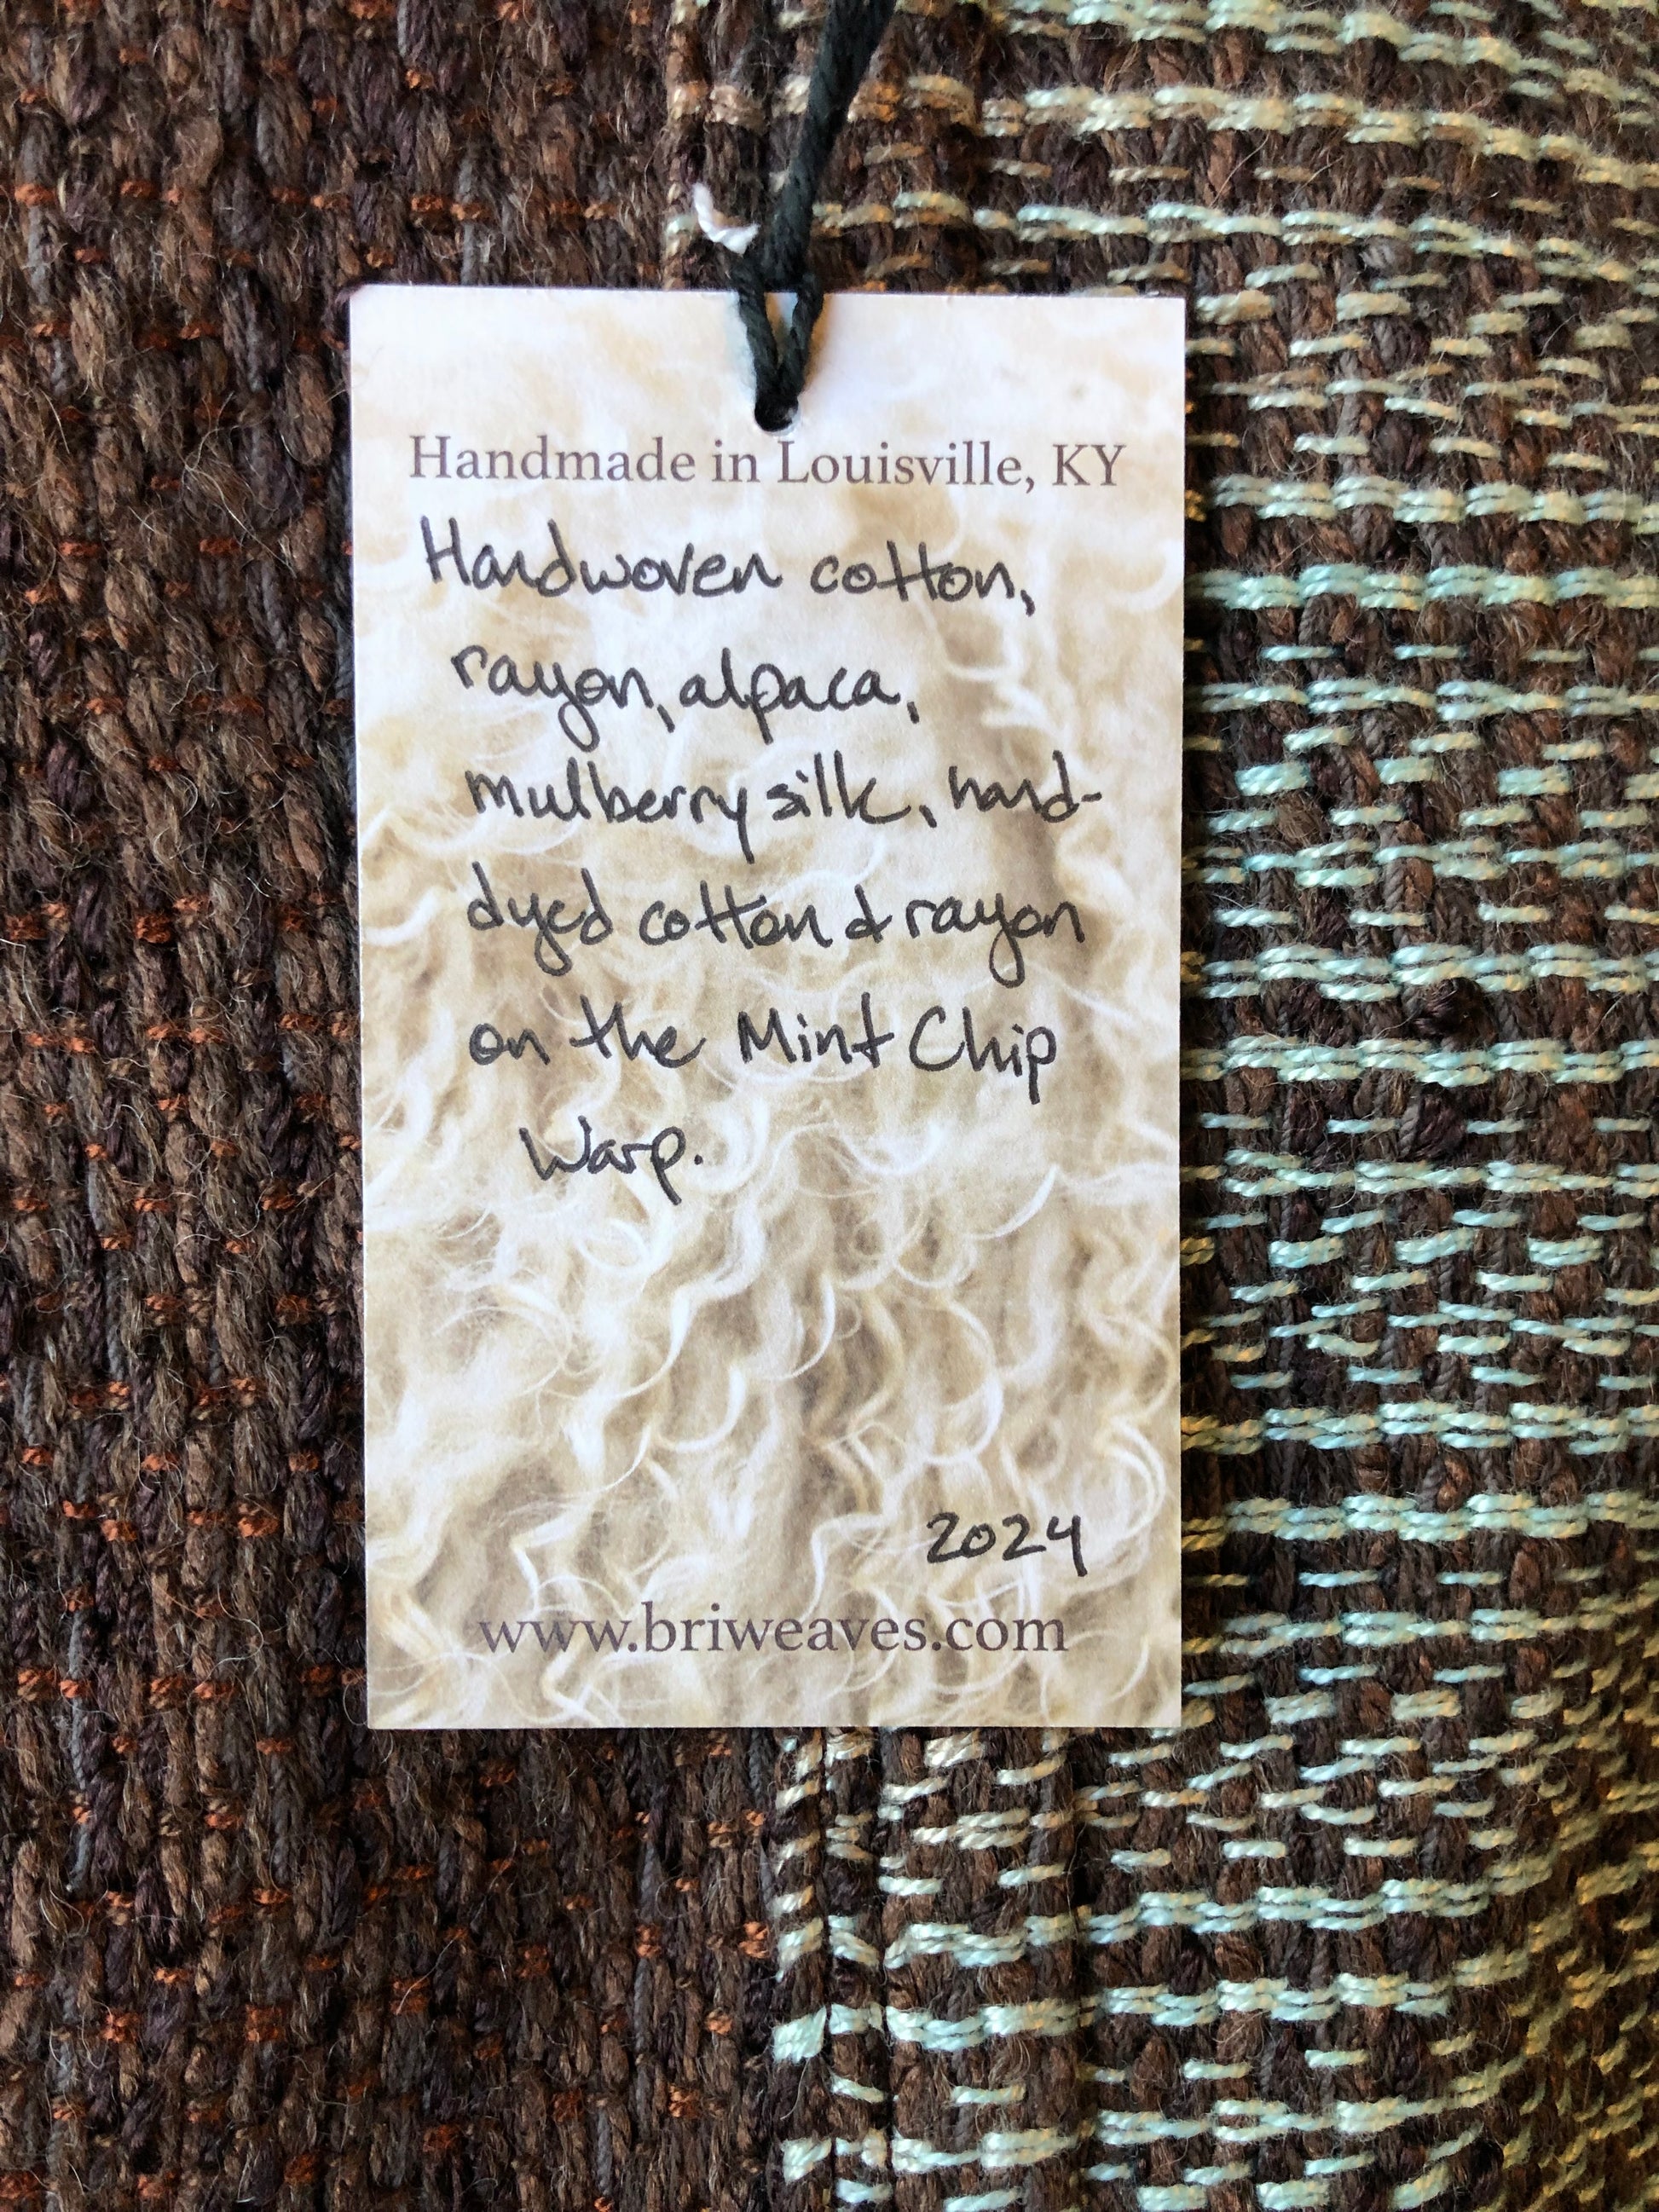 Handmade in Louisville, KY
Handwoven cotton,
rayon, alpaca,
mulberry silk, hand-
dyed cotton & rayon
on the Mint Chip
Warp.
2024
www.briweaves.com